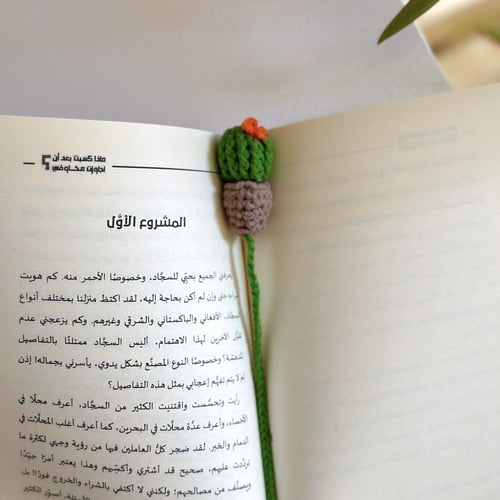 ماذا كسبت بعد أن
تجاوزت مخاوفي؟
المشروع الأوّل
يعرفني الجميع بحبّي للسجّاد، وخصوصًا الأحمر منه. كم هويت
شراءه حتى وإن لم أكن بحاجة إليه، لقد اكتظ منزلنا بمختلف أنواع
السجّاد، الأفغاني والباكستاني والشرقي وغيرهم. وكم يزعجني عدم
تقبّل الآخرين لهذا الاهتمام، أليس السجّاد ممتلئًا بالتفاصيل
المدهشة؟ وخصوصًا النوع المصنّع بشكل يدوي، يأسرني بجماله! إذن
لم لا يتم تفهّم إعجابي بمثل هذه التفاصيل؟
رأيت وتحسّست واقتنيت الكثير من السجّاد، أعرف محلًا في
الأحساء، وأعرف عدّة محلّات في البحرين، كما أعرف أغلب المحلّات في
الدمام والخبر. لقد ضجر كلّ العاملين فيها من رؤية وجهي لكثرة ما
تردّدت عليهم، صحيح قد أشتري وأكسبهم وهذا يعتبر أمرًا جيّدًا
ويصنّف من مصالحهم؛ ولكنني لا أكتفي بالشراء والخروج فورًا! بل
أصوّر الكثير